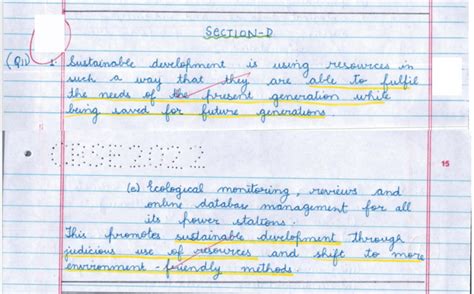 SECTION-D
(Q11) 1. Sustainable development is using resources in
such a way that they are able to fulfil
the needs of the present generation while
being saved for future generations.
CBSE2022
15
(c) Ecological monitoring, reviews and
online database management for all
its power stations.
This promotes sustainable development through
judicious use of resources and shift to more
environment-friendly methods.